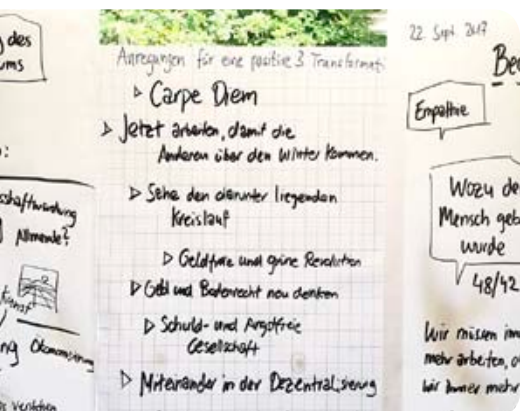 des
ums
:
Allmende?
Anregungen für eine positive 3. Transformati
▷ Carpe Diem
▷ Jetzt arbeiten, damit die
Anderen über den Winter kommen.
▷ Sehe den darunter liegenden
Kreislauf
▷ Geldfreie und grüne Revolution
▷ Geld und Bodenrecht neu denken
▷ Schuld- und Angstfreie
Gesellschaft
▷ Miteinander in der Dezentralisierung
22. Sept. 2017
Empathie
Wozu de
Mensch geb
wurde
48/42
Wir müssen im
mehr arbeiten, o
wir immer mehr